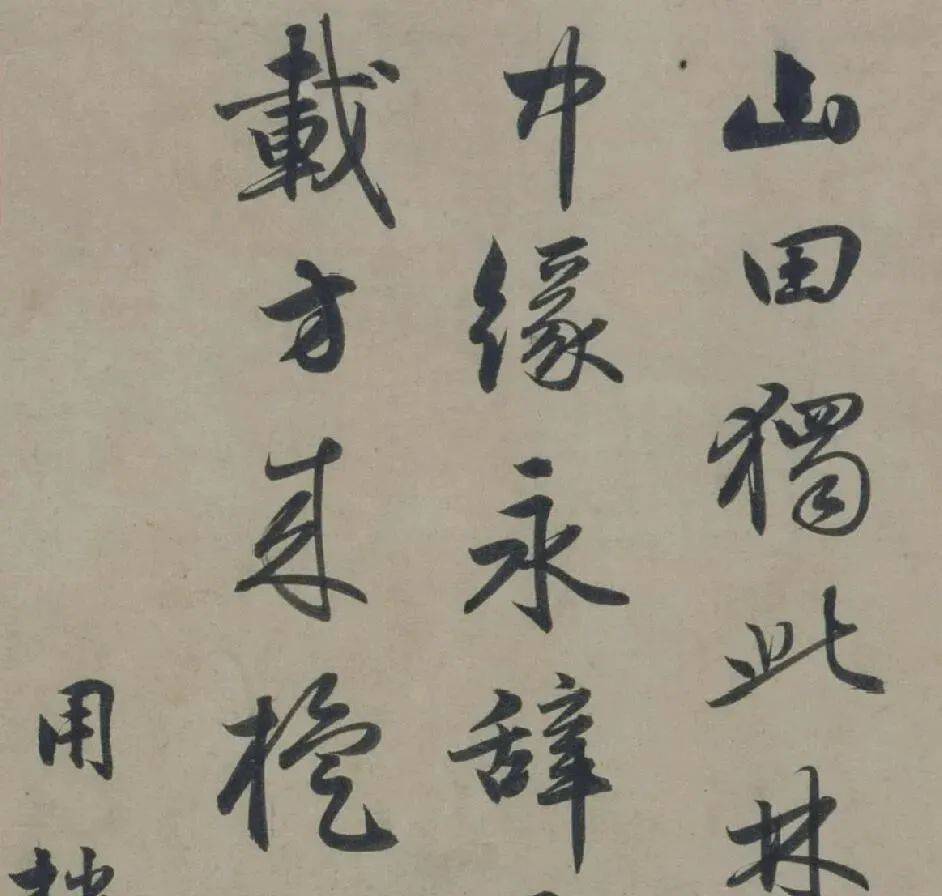 山田獨此林
中緣永辭
載方來
用